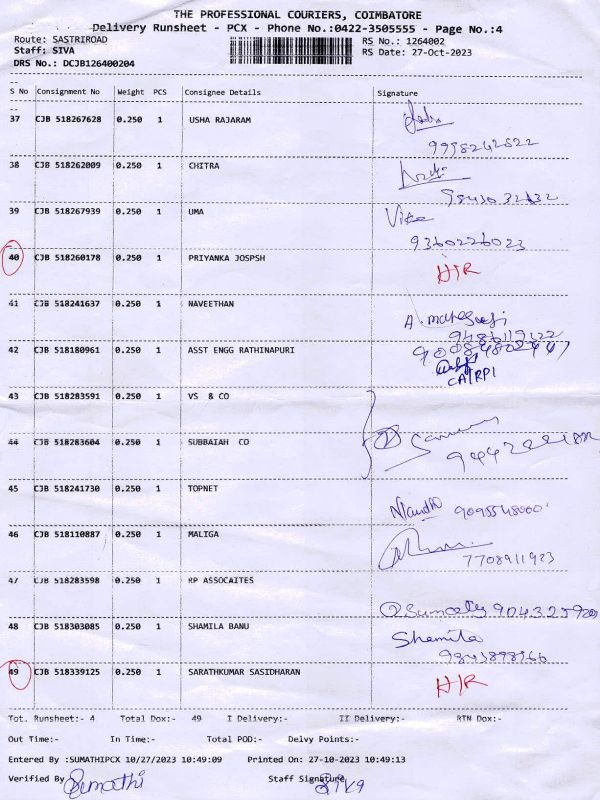 THE PROFESSIONAL COURIERS, COIMBATORE
Delivery Runsheet - PCX - Phone No.:0422-3505555 - Page No.:4
Route: SASTRIROAD RS No.: 1264002
Staff: SIVA RS Date: 27-Oct-2023
DRS No.: DCJB126400204
S No Consignment No Weight PCS Consignee Details Signature
37 CJB 518267628 0.250 1 USHA RAJARAM
38 CJB 518262009 0.250 1 CHITRA
39 CJB 518267939 0.250 1 UMA
9360226023
40 CJB 518260178 0.250 1 PRIYANKA JOSPSH H/R
41 CJB 518241637 0.250 1 NAVEETHAN
42 CJB 518180961 0.250 1 ASST ENGG RATHINAPURI
CA/RPI
43 CJB 518283591 0.250 1 VS & CO
44 CJB 518283604 0.250 1 SUBBAIAH CO
45 CJB 518241730 0.250 1 TOPNET
46 CJB 518110887 0.250 1 MALIGA
7708911923
47 CJB 518283598 0.250 1 RP ASSOCAITES
48 CJB 518303085 0.250 1 SHAMILA BANU Shamila
49 CJB 518339125 0.250 1 SARATHKUMAR SASIDHARAN H/R
Tot. Runsheet:- 4 Total Dox:- 49 I Delivery:- II Delivery:- RTN Dox:-
Out Time:- In Time:- Total POD:- Delvy Points:-
Entered By :SUMATHIPCX 10/27/2023 10:49:09 Printed On: 27-10-2023 10:49:13
Verified By Sumathi Staff Signature